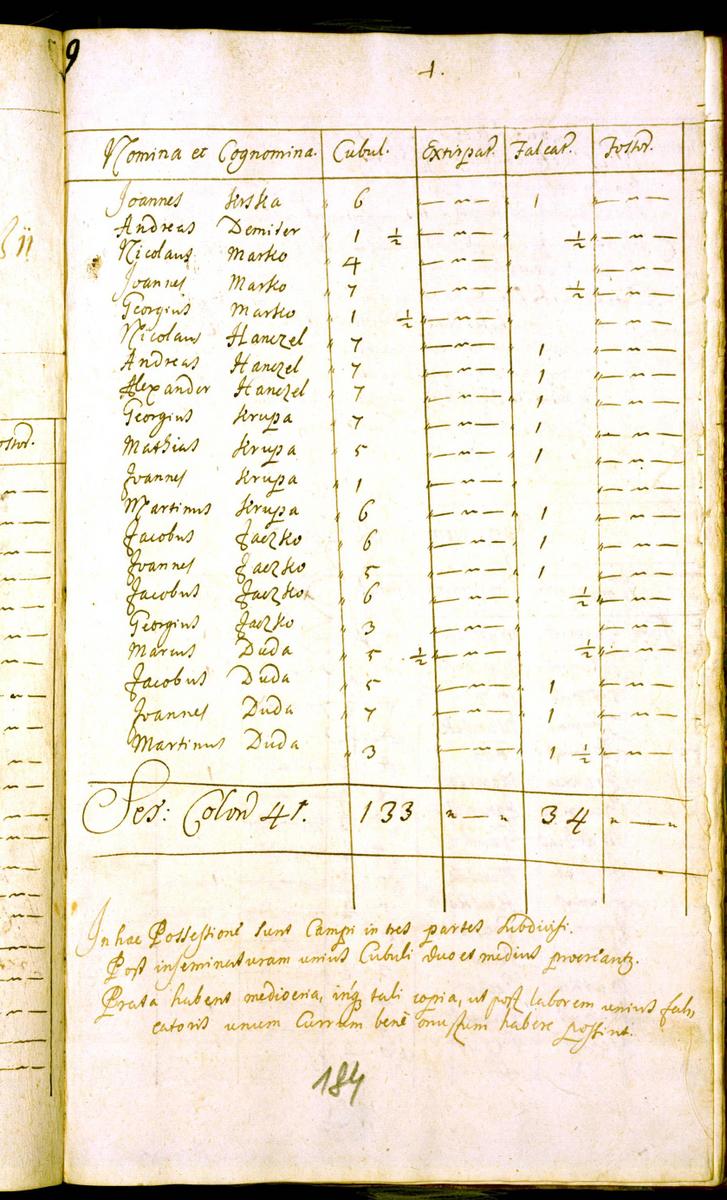 9
1.
Nomina et Cognomina. Cubul. Extirpat. Falcat. Fossor.
Joannes Krska " 6 — " — " 1 " — " —
Andreas Demiter " 1 ½ " — " — " ½ " — " —
Nicolaus Marko " 4 " — " — " " — " —
Joannes Marko " 7 " — " — " ½ " — " —
Georgius Marko " 1 ½ " — " — " " — " —
Nicolaus Hanczel " 7 " — " — " 1 " — " —
Andreas Hanczel " 7 " — " — " 1 " — " —
Alexander Hanczel " 7 " — " — " 1 " — " —
Georgius Krupa " 7 " — " — " 1 " — " —
Mathias Krupa " 5 " — " — " 1 " — " —
Joannes Krupa " 1 " — " — " " — " —
Martinus Krupa " 6 " — " — " 1 " — " —
Jacobus Jaczko " 6 " — " — " 1 " — " —
Joannes Jaczko " 5 " — " — " 1 " — " —
Jacobus Jaczko " 6 " — " — " ½ " — " —
Georgius Jaczko " 3 " — " — " " — " —
Marcus Duda " 5 ½ " — " — " ½ " — " —
Jacobus Duda " 5 " — " — " 1 " — " —
Joannes Duda " 7 " — " — " 1 " — " —
Martinus Duda " 3 — " — " 1 ½ " — " —
Colon 41. 133 " — " 34 " — "
In hac Possessione sunt Campi in tres partes subdivisi.
Post inseminaturam unius Cubuli duo et medius procreantr.
Prata habent mediocria, inq tali copia, ut post laborem unius fal,
catoris unum Currum benè onustum habere possint.
184